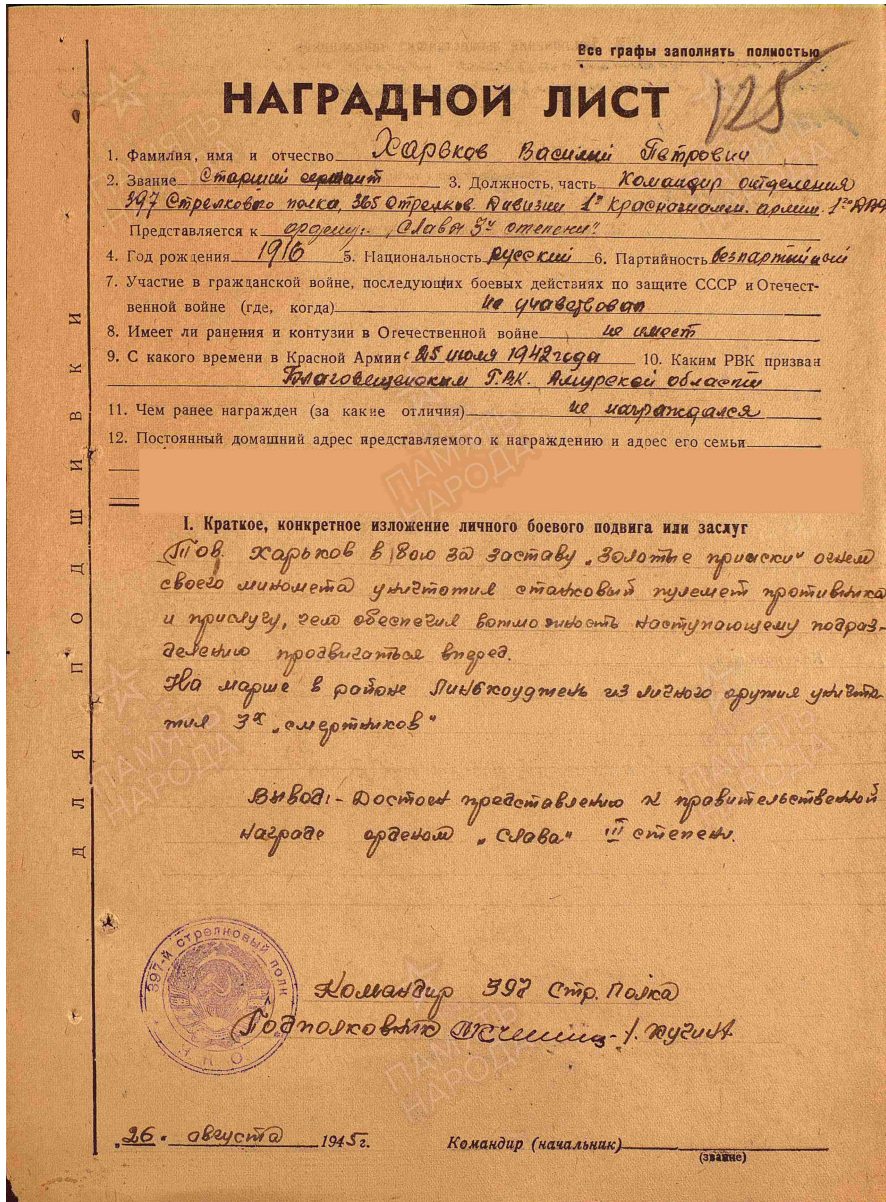 Все графы заполнять полностью
125
НАГРАДНОЙ ЛИСТ
1. Фамилия, имя и отчество Харьков Василий Петрович
2. Звание Старший сержант 3. Должность, часть Командир отделения
397 Стрелкового полка, 365 Стрелков. Дивизии 1ой Краснознамен. армии.
Представляется к ордену:- „Славы 3й степени"
4. Год рождения 1916 5. Национальность русский 6. Партийность безпартийный
7. Участие в гражданской войне, последующих боевых действиях по защите СССР и Отечест-
венной войне (где, когда) не учавствовал
8. Имеет ли ранения и контузии в Отечественной войне не имеет
9. С какого времени в Красной Армии с 25 июля 1942 года 10. Каким РВК призван
Благовещенским Г.В.К. Амурской области
11. Чем ранее награжден (за какие отличия) не награждался
12. Постоянный домашний адрес представляемого к награждению и адрес его семьи
I. Краткое, конкретное изложение личного боевого подвига или заслуг
Тов. Харьков в бою за заставу „Золотые прииски" огнем
своего миномета уничтожил станковый пулемет противника
и прислугу, чем обеспечил возможность наступающему подраз-
делению продвигаться вперед.
На марше в районе Линькоуджень из личного оружия уничто-
жил 3х „смертников"
Вывод:- Достоен представлению к правительственной
награде орденом „Слава" III степени.
Командир 397 Стр. Полка
Подполковник
397-й стрелковый полк
Н К О
„26" августа 1945 г.
Командир (начальник)
(звание)
ДЛЯ ПОДШИВКИ
ПАМЯТЬ НАРОДА
ПАМЯТЬ НАРОДА
ПАМЯТЬ НАРОДА
ПАМЯТЬ НАРОДА
ПАМЯТЬ НАРОДА